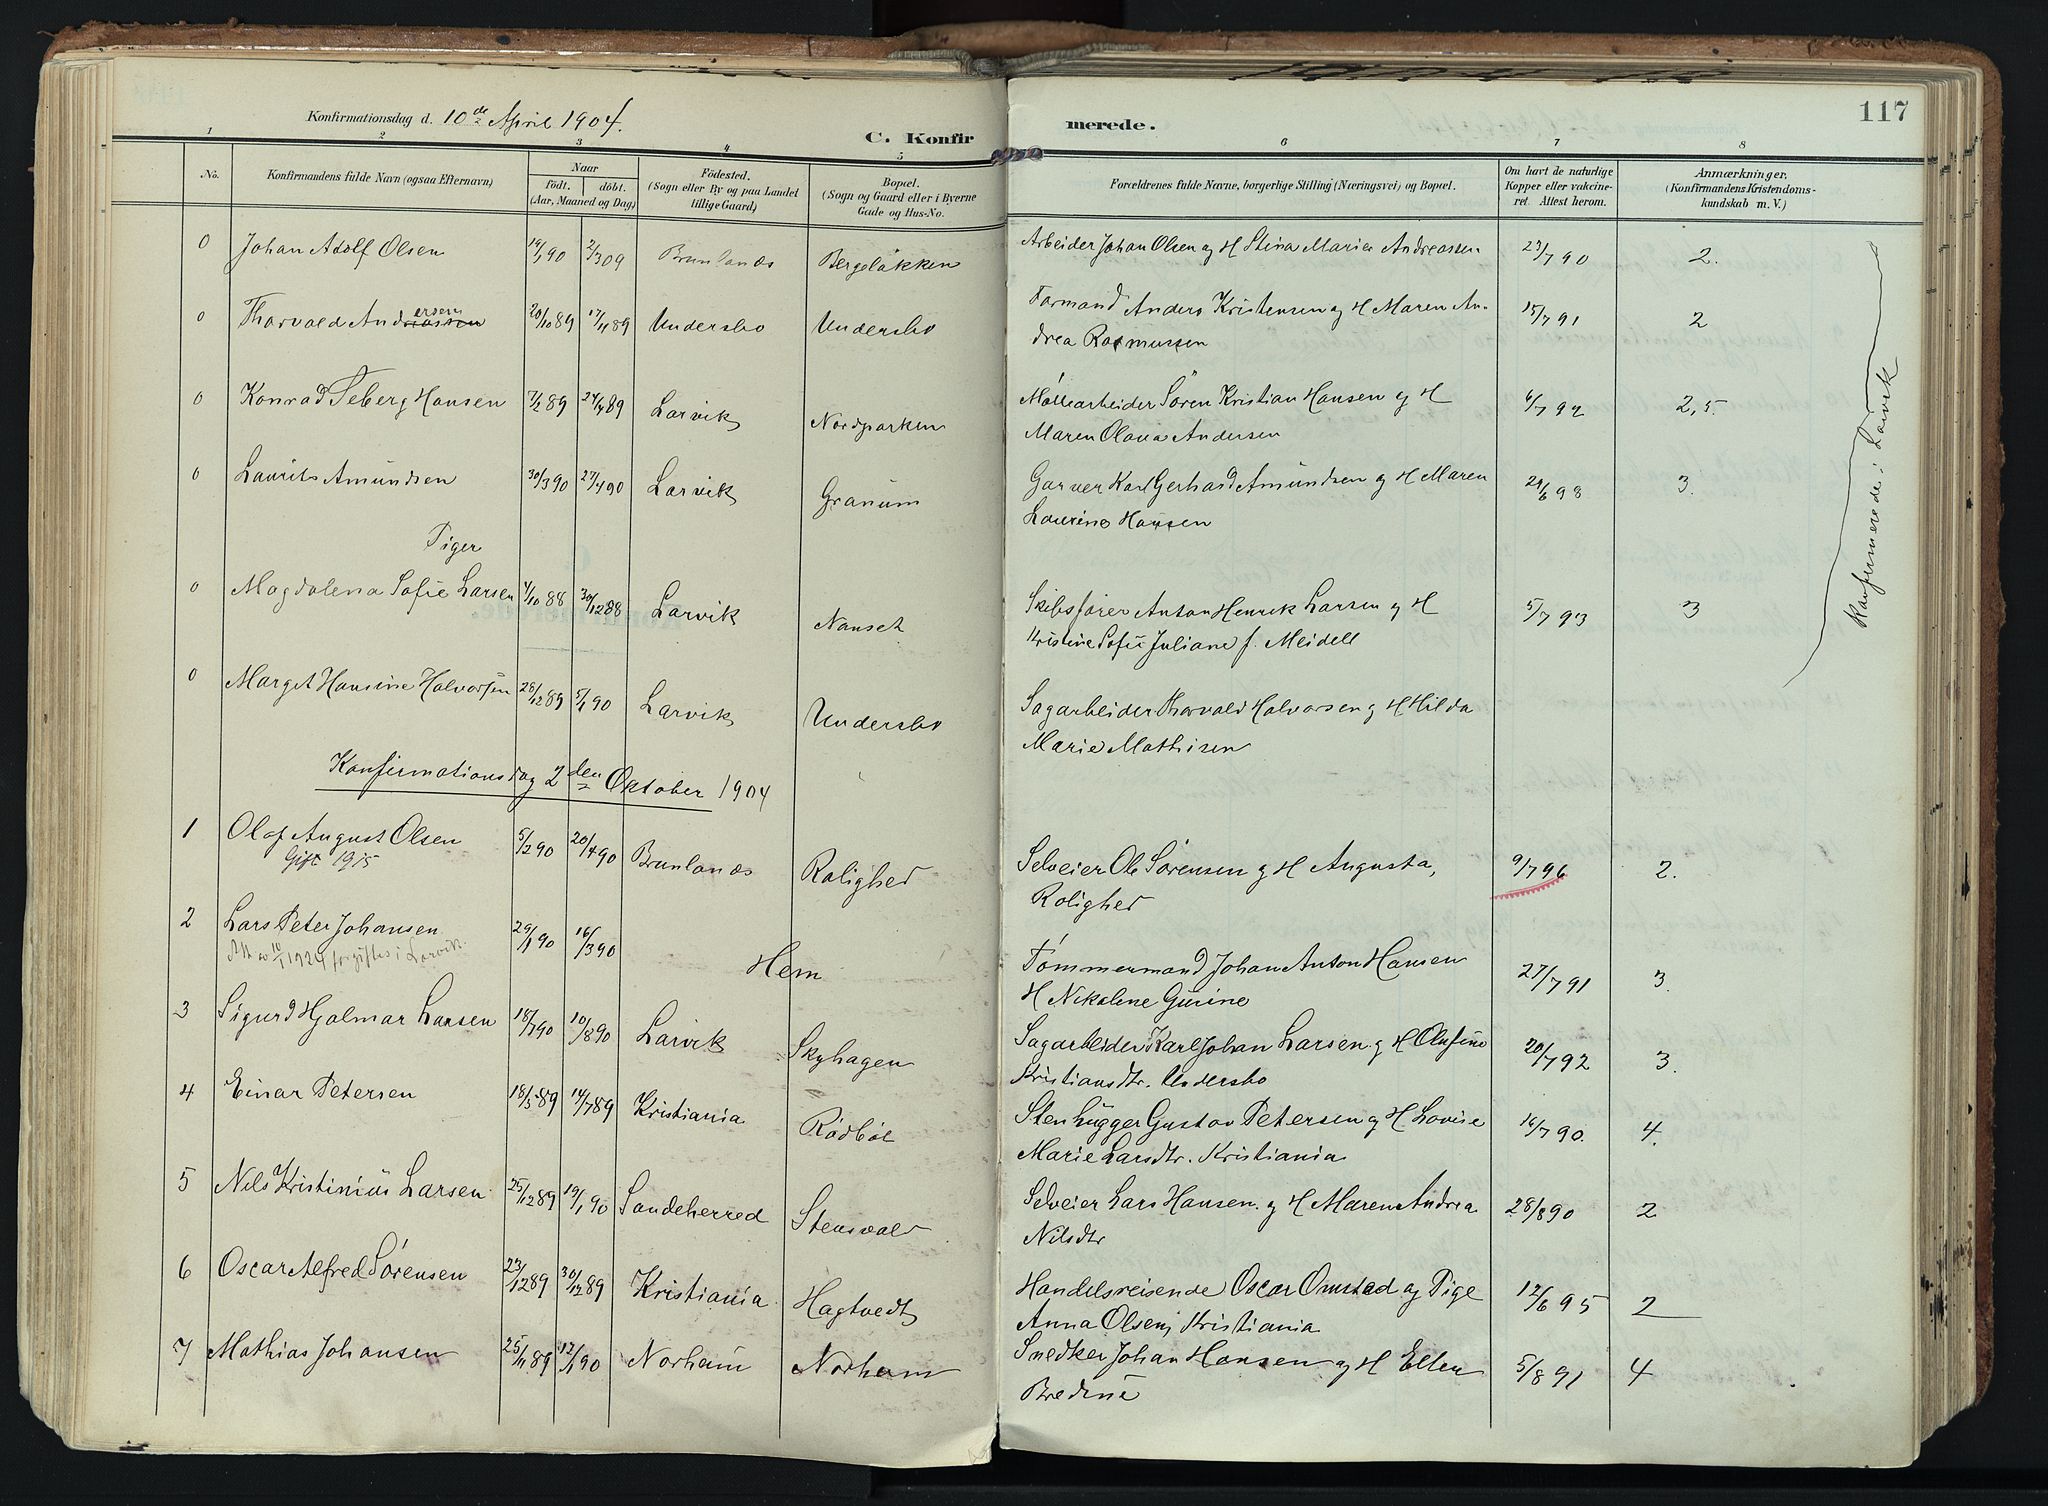 117
Konfirmationsdag d. 10de April 1904.
C. Konfirmerede.
1 2 3 4 5 6 7 8
No.
Konfirmandens fulde Navn (ogsaa Efternavn)
Naar
födt. döbt.
(Aar, Maaned og Dag)
Födested.
(Sogn eller By og paa Landet
tillige Gaard)
Bopæl.
(Sogn og Gaard eller i Byerne
Gade og Hus-No.
Forældrenes fulde Navne, borgerlige Stilling (Næringsvei) og Bopæl.
Om havt de naturlige
Kopper eller vakcine-
ret. Attest herom.
Anmærkninger.
(Konfirmandens Kristendoms-
kundskab m. V.)
0 Johan Adolf Olsen 19/1 90 Brunlanæs Bergeløkken Arbeider Johan Olsen og H Stina Maria Andreassen 23/7 90 2.
0 Thorvald Andersen 20/10 89 17/11 89 Undersbo Undersbo Formand Anders Kristensen og H Maren An-
drea Rasmussen 15/7 91 2
0 Konrad Seberg Hansen 7/2 89 24/4 89 Larvik Nordparken Møllearbeider Sören Kristian Hansen og H
Maren Olava Andersen 6/7 92 2,5.
0 Laurits Amundsen 30/3 90 27/4 90 Larvik Granum Garver Karl Gerhard Amundsen og H Maren
Laurine Hansen 21/6 98 3.
Piger
0 Magdalena Sofie Larsen 4/10 88 30/12 88 Larvik Nanset Skibsfører Anton Henrik Larsen og H
Kristine Sofie Juliane f. Meidell 5/7 93 3
0 Marget Hansine Halvorsen 28/12 89 5/1 90 Larvik Undersbo Sagarbeider Thorvald Halvorsen og H Hilda
Marie Mathisen
Konfirmerede i Larvik
Konfirmationsdag 2den Oktober 1904
1 Olaf August Olsen 5/2 90 20/4 90 Brunlanæs Rolighed Selveier Ole Sørensen og H Augusta,
Gift 1915
Rolighed 9/7 96 2.
2 Lars Peter Johansen 29/1 90 16/3 90 Hem Tömmermand Johan Anton Hansen
1924 forgiftes i Larvik.
H Nikoline Gurine 27/7 91 3.
3 Sigurd Hjalmar Larsen 18/7 90 10/8 90 Larvik Skyhagen Sagarbeider Karl Johan Larsen og H Olufine
Kristiansdtr. Undersbo 20/7 92 3.
4 Einar Petersen 18/5 89 14/7 89 Kristiania Rödböl Stenhugger Gustav Petersen og H Lovise
Marie Larsdtr. Kristiania 16/7 90. 4.
5 Nils Kristinius Larsen. 25/12 89 19/1 90 Sandeherred Stensvold Selveier Lars Hansen og H Maren Andrea
Nilsdtr 28/8 90 2
6 Oscar Alfred Sørensen 23/12 89 30/12 89 Kristiania Hagtvedt Handelsreisende Oscar Omstad og Pige
Anna Olsen, Kristiania 12/6 95 2
7 Mathias Johansen 25/11 89 12/1 90 Norheim Norheim Snedker Johan Hansen og H Ellen
Bredine 5/8 91 4